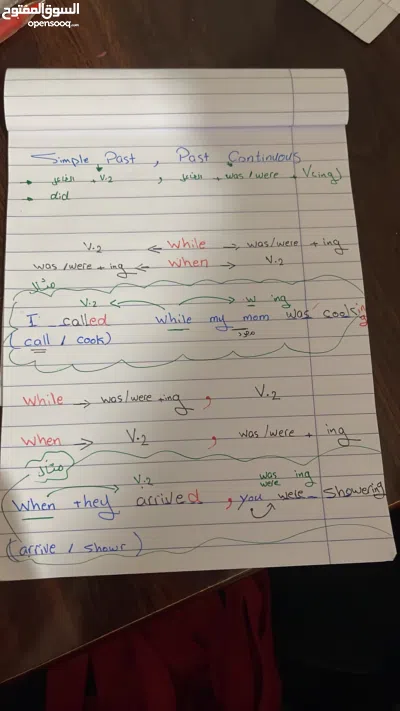 السوق المفتوح
opensooq.com
Simple Past , Past Continuous
→ الفاعل + V.2 , الفاعل + was/were + V(ing)
→ did
V.2 ← While → was/were + ing
was/were + ing ← When → V.2
مثال
V.2 w ing
I called While my mom was cooking
(call / cook) مفرد
While → was/were +ing , V.2
When → V.2 , was/were + ing
مثال
V.2 was were ing
When they arrived , you were showering
(arrive / showr)